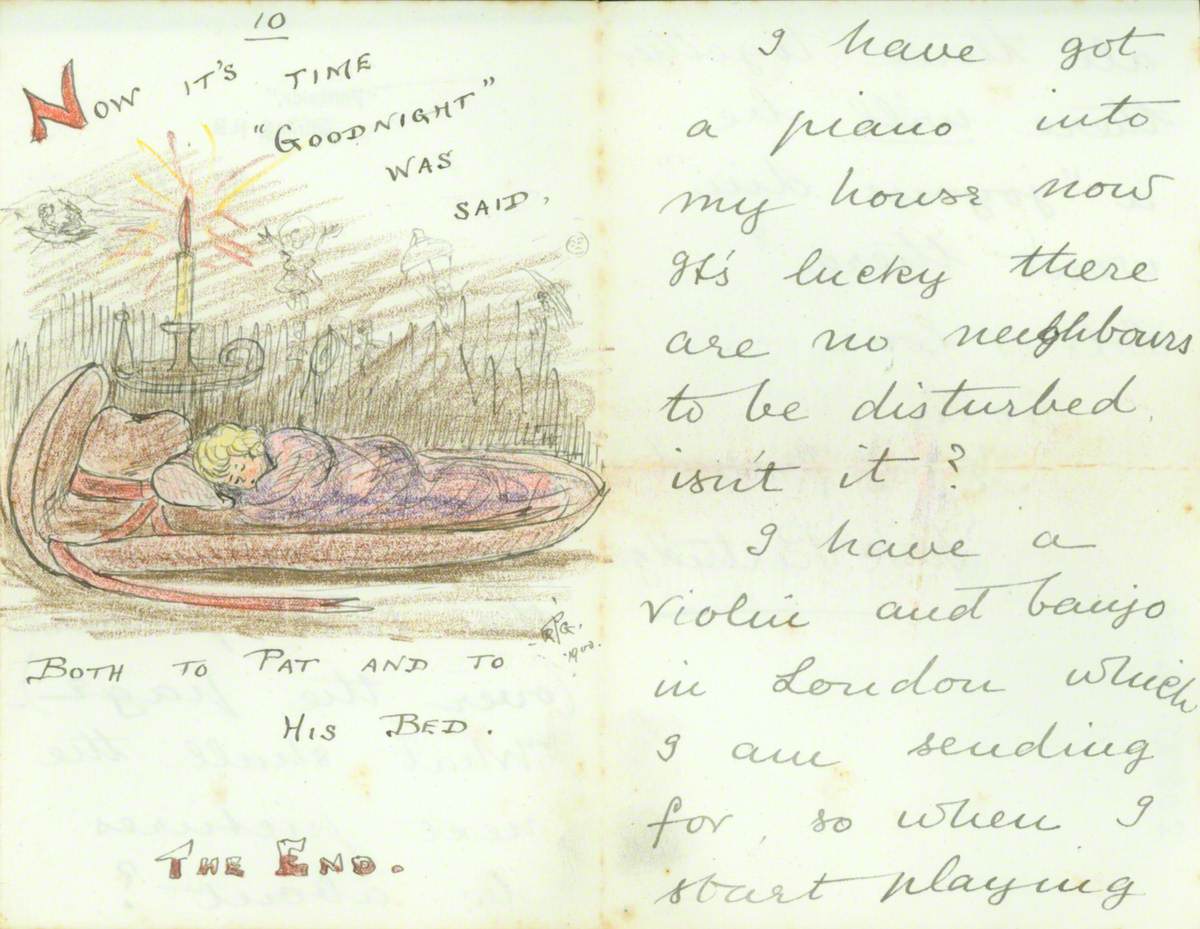 10
NOW IT'S TIME
"GOODNIGHT"
WAS
SAID,
BOTH TO PAT AND TO
HIS BED.
THE END.
I have got
a piano into
my house now
It's lucky there
are no neighbours
to be disturbed
isn't it?
I have a
violin and banjo
in London which
I am sending
for, so when I
start playing